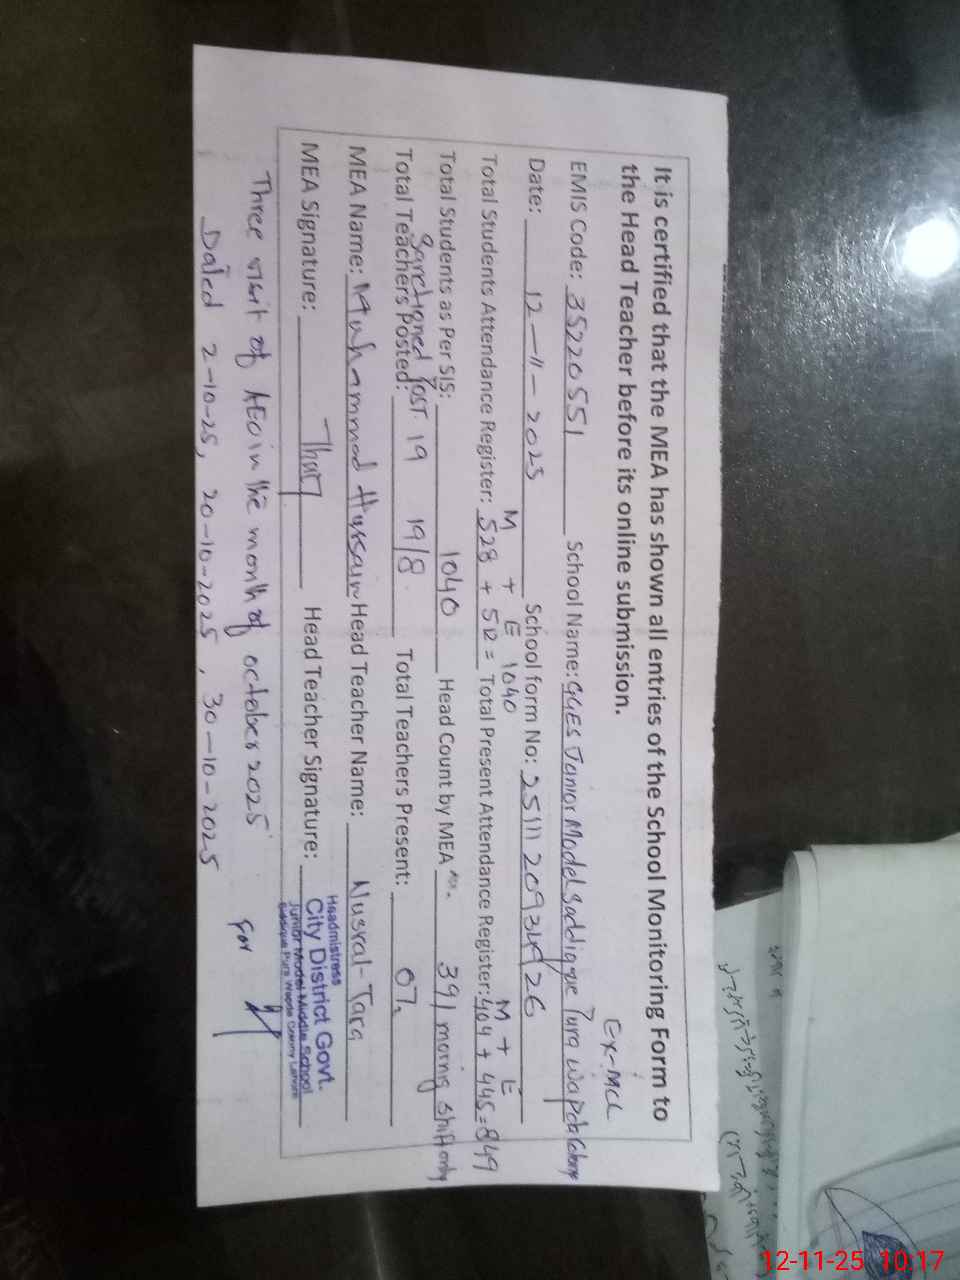 It is certified that the MEA has shown all entries of the School Monitoring Form to
the Head Teacher before its online submission.
Ex-MCL
EMIS Code: 35220551 School Name: GGES Junior Model Saddique Pura Wapda Colony
Date: 12-11-2025 School form No: 2511120934926
M + E 1040 M + E
Total Students Attendance Register: 528 + 512 = Total Present Attendance Register: 404 + 445 = 849
Total Students as Per SIS: 1040 Head Count by MEA 391 morning shift only
Sanctioned Post 19
Total Teachers Posted: 19/8 Total Teachers Present: 07
MEA Name: Muhammad Hussain Head Teacher Name: Nusrat Tara
MEA Signature: Head Teacher Signature:
Headmistress
City District Govt.
Junior Model Middle School
Siddique Pura Wapda Colony Lahore
Three visit of AEO in the month of october 2025
For
Dated 2-10-25, 20-10-2025, 30-10-2025
12-11-25 10:17